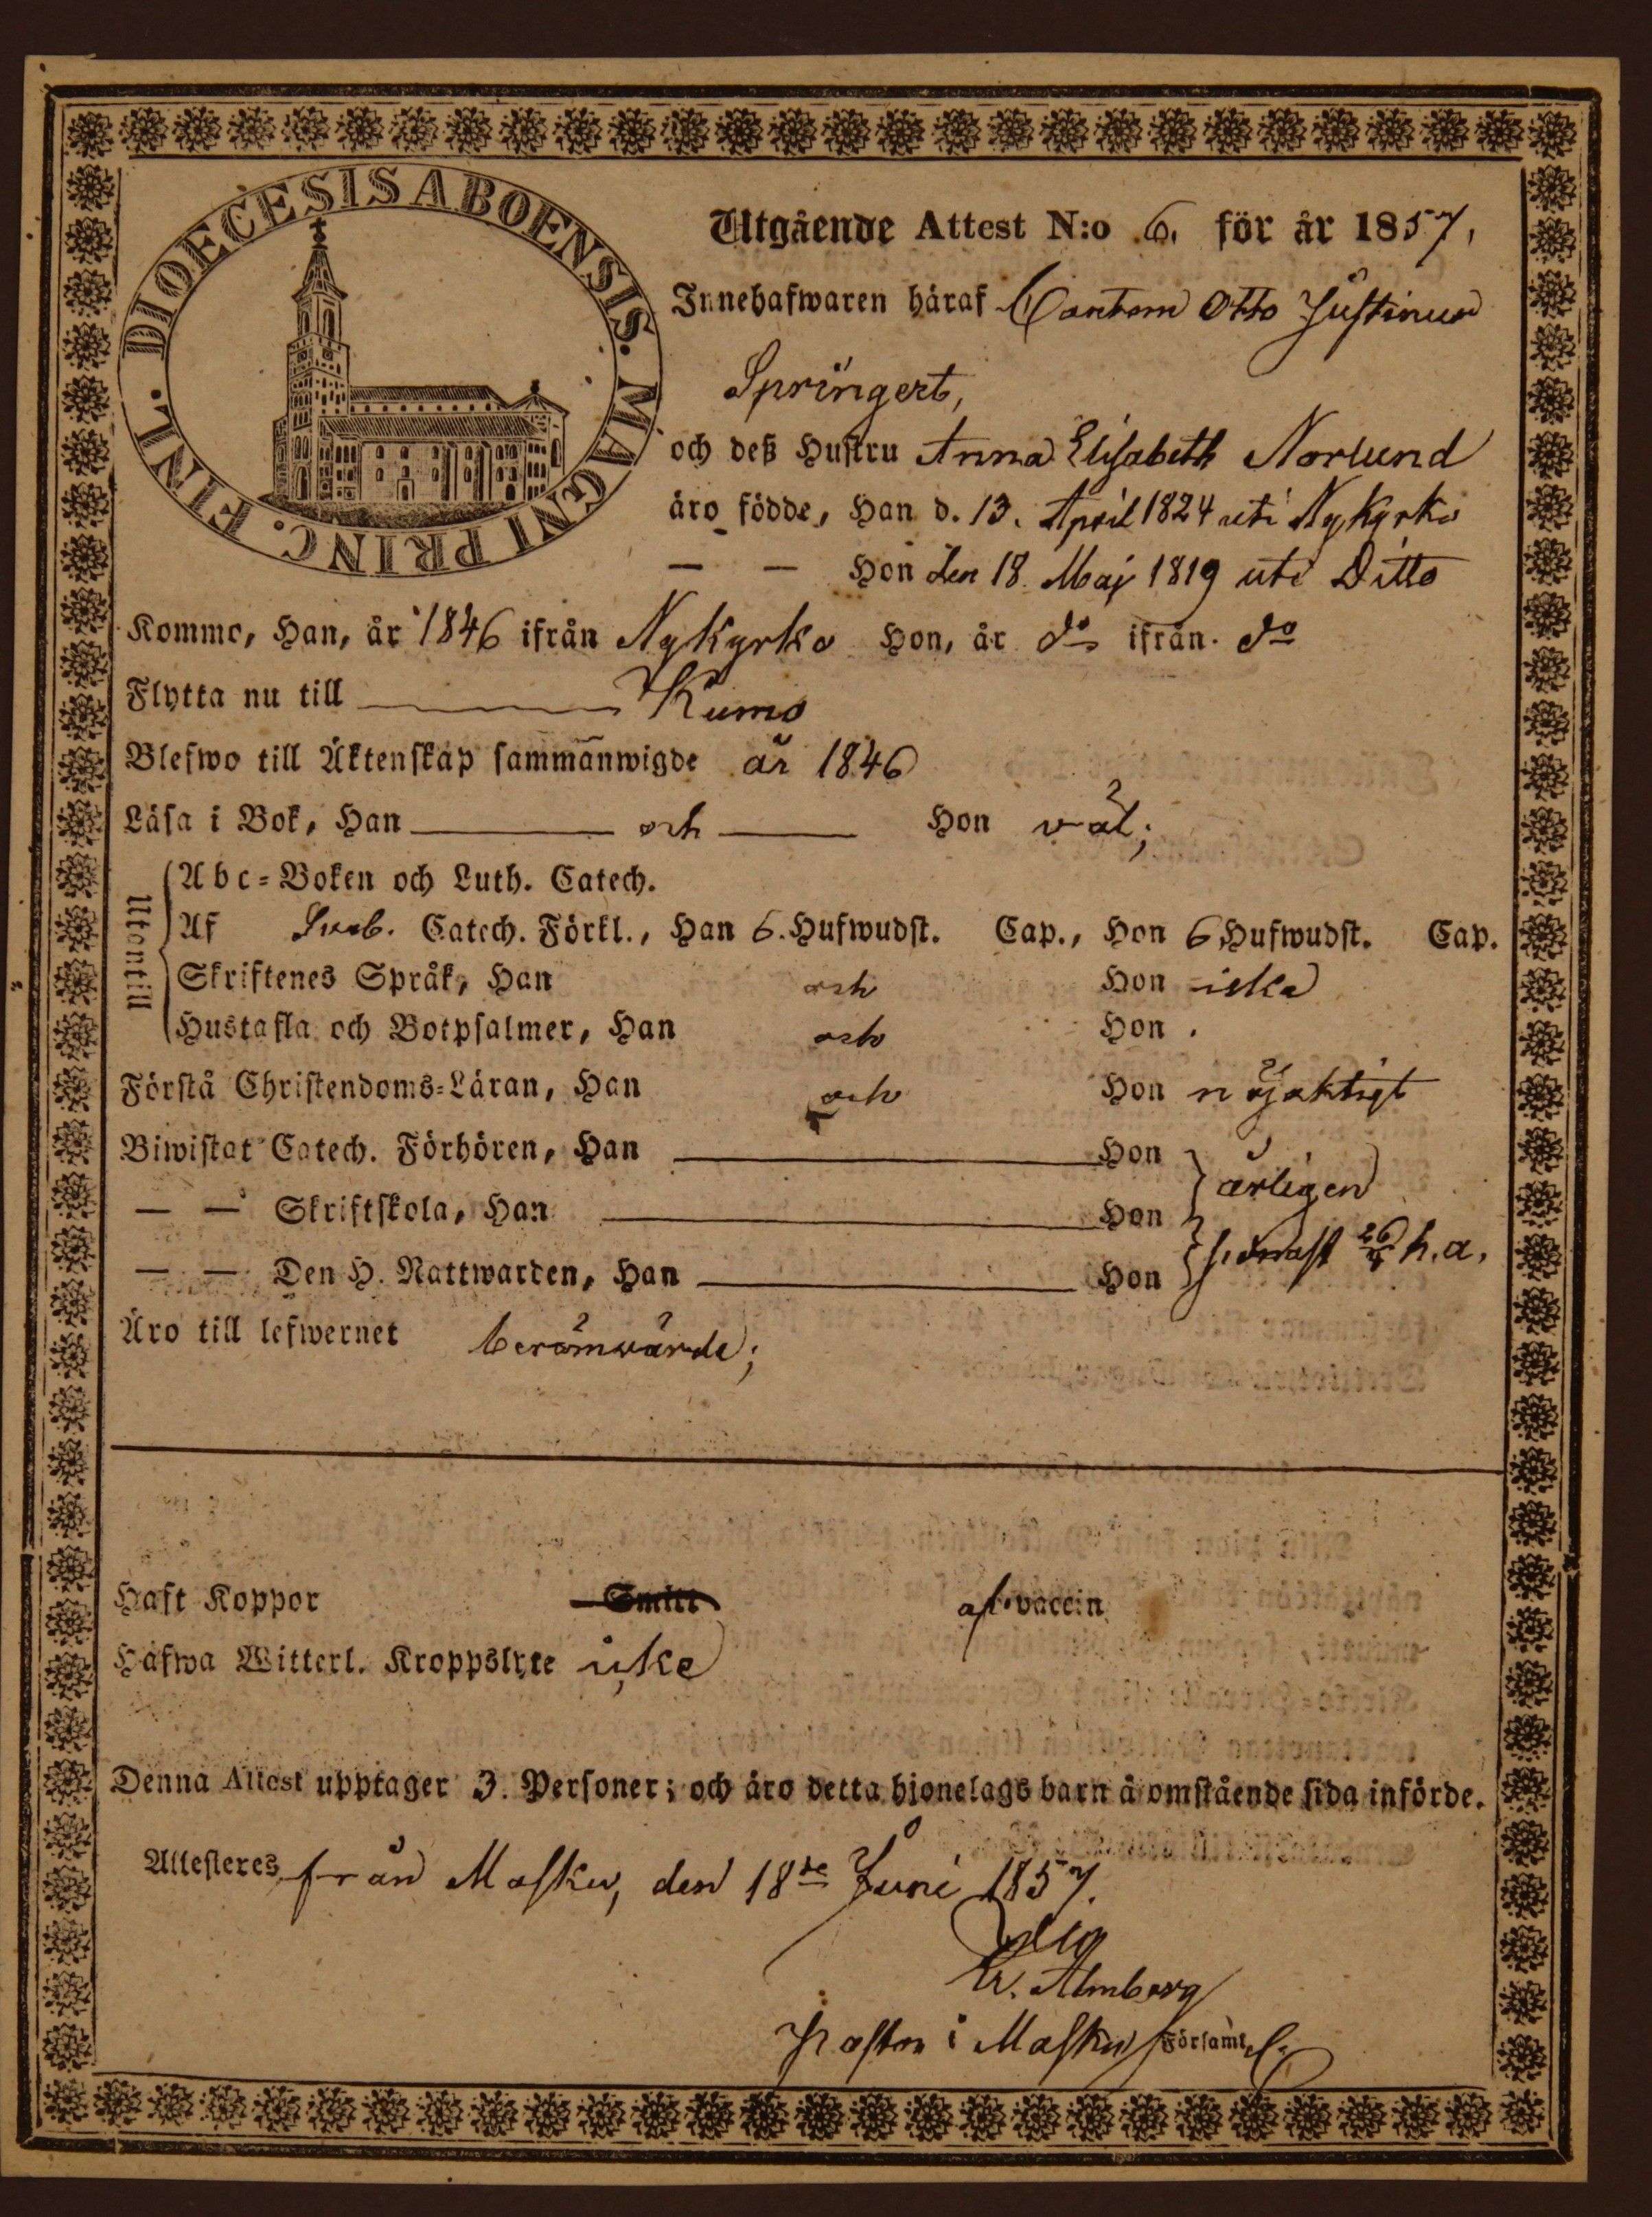 DIOECESIS ABOENSIS. MAGNI PRINC. FINL.
Utgående Attest N:o 6. för år 1857,
Innehafwaren häraf Cantorn Otto Justinus
Springert,
och deß Hustru Anna Elisabeth Norlund
äro födde, Han d. 13. April 1824 uti Nykyrko
— — Hon den 18. Maj 1819 uti Ditto
Kommo, Han, år 1846 ifrån Nykyrko Hon, år do ifrån do
Flytta nu till Kumo
Blefwo till Äktenskap sammanwigde år 1846
Läsa i Bok, Han och Hon väl;
Utantill
Abc-Boken och Luth. Catech.
Af Sveb. Catech. Förkl., Han 6. Hufwudst. Cap., Hon 6 Hufwudst. Cap.
Skriftenes Språk, Han och Hon
Hustafla och Botpsalmer, Han och Hon
Förstå Christendoms-Läran, Han och Hon nöjaktigt
Biwistat Catech. Förhören, Han Hon
årligen
— — Skriftskola, Han Hon
— — Den H. Nattwarden, Han Hon
sednast h. a.
Äro till lefwernet berömvärde;
Haft Koppor Smitt af vaccin
Hafwa Witterl. Kroppslyte icke
Denna Attest upptager 3. Personer; och äro detta hjonelags barn å omstående sida införde.
Attesteres från Masku, den 18de Juni 1857.
Almberg
Pastor i Masku Församl.